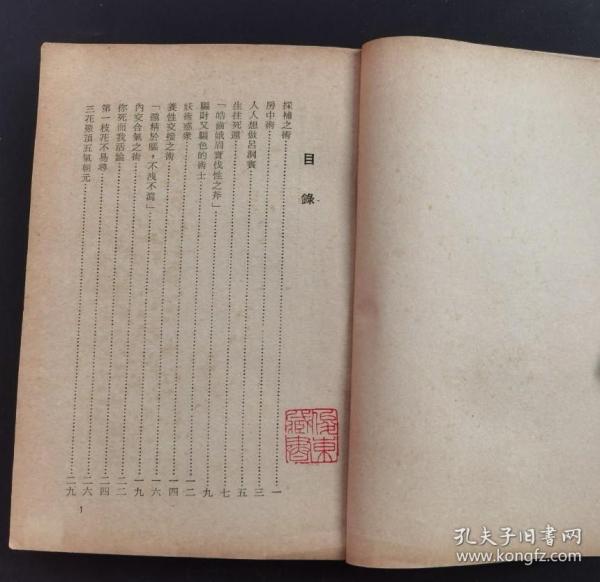 目錄
採補之術⋯⋯一
房中術⋯⋯三
人人想做呂洞賓⋯⋯五
生往死還⋯⋯七
「皓齒娥眉實伐性之斧」⋯⋯九
騙財又騙色的術士⋯⋯一二
妖術惑衆⋯⋯一四
養性交接之術⋯⋯一六
「還精於腦，不洩不瀉」⋯⋯一九
內交合氣之術⋯⋯二二
你死而我活論⋯⋯二四
第一枝花不易尋⋯⋯二六
三花聚頂五氣朝元⋯⋯二九
1
東
藏書
孔夫子旧书网
www.kongfz.com